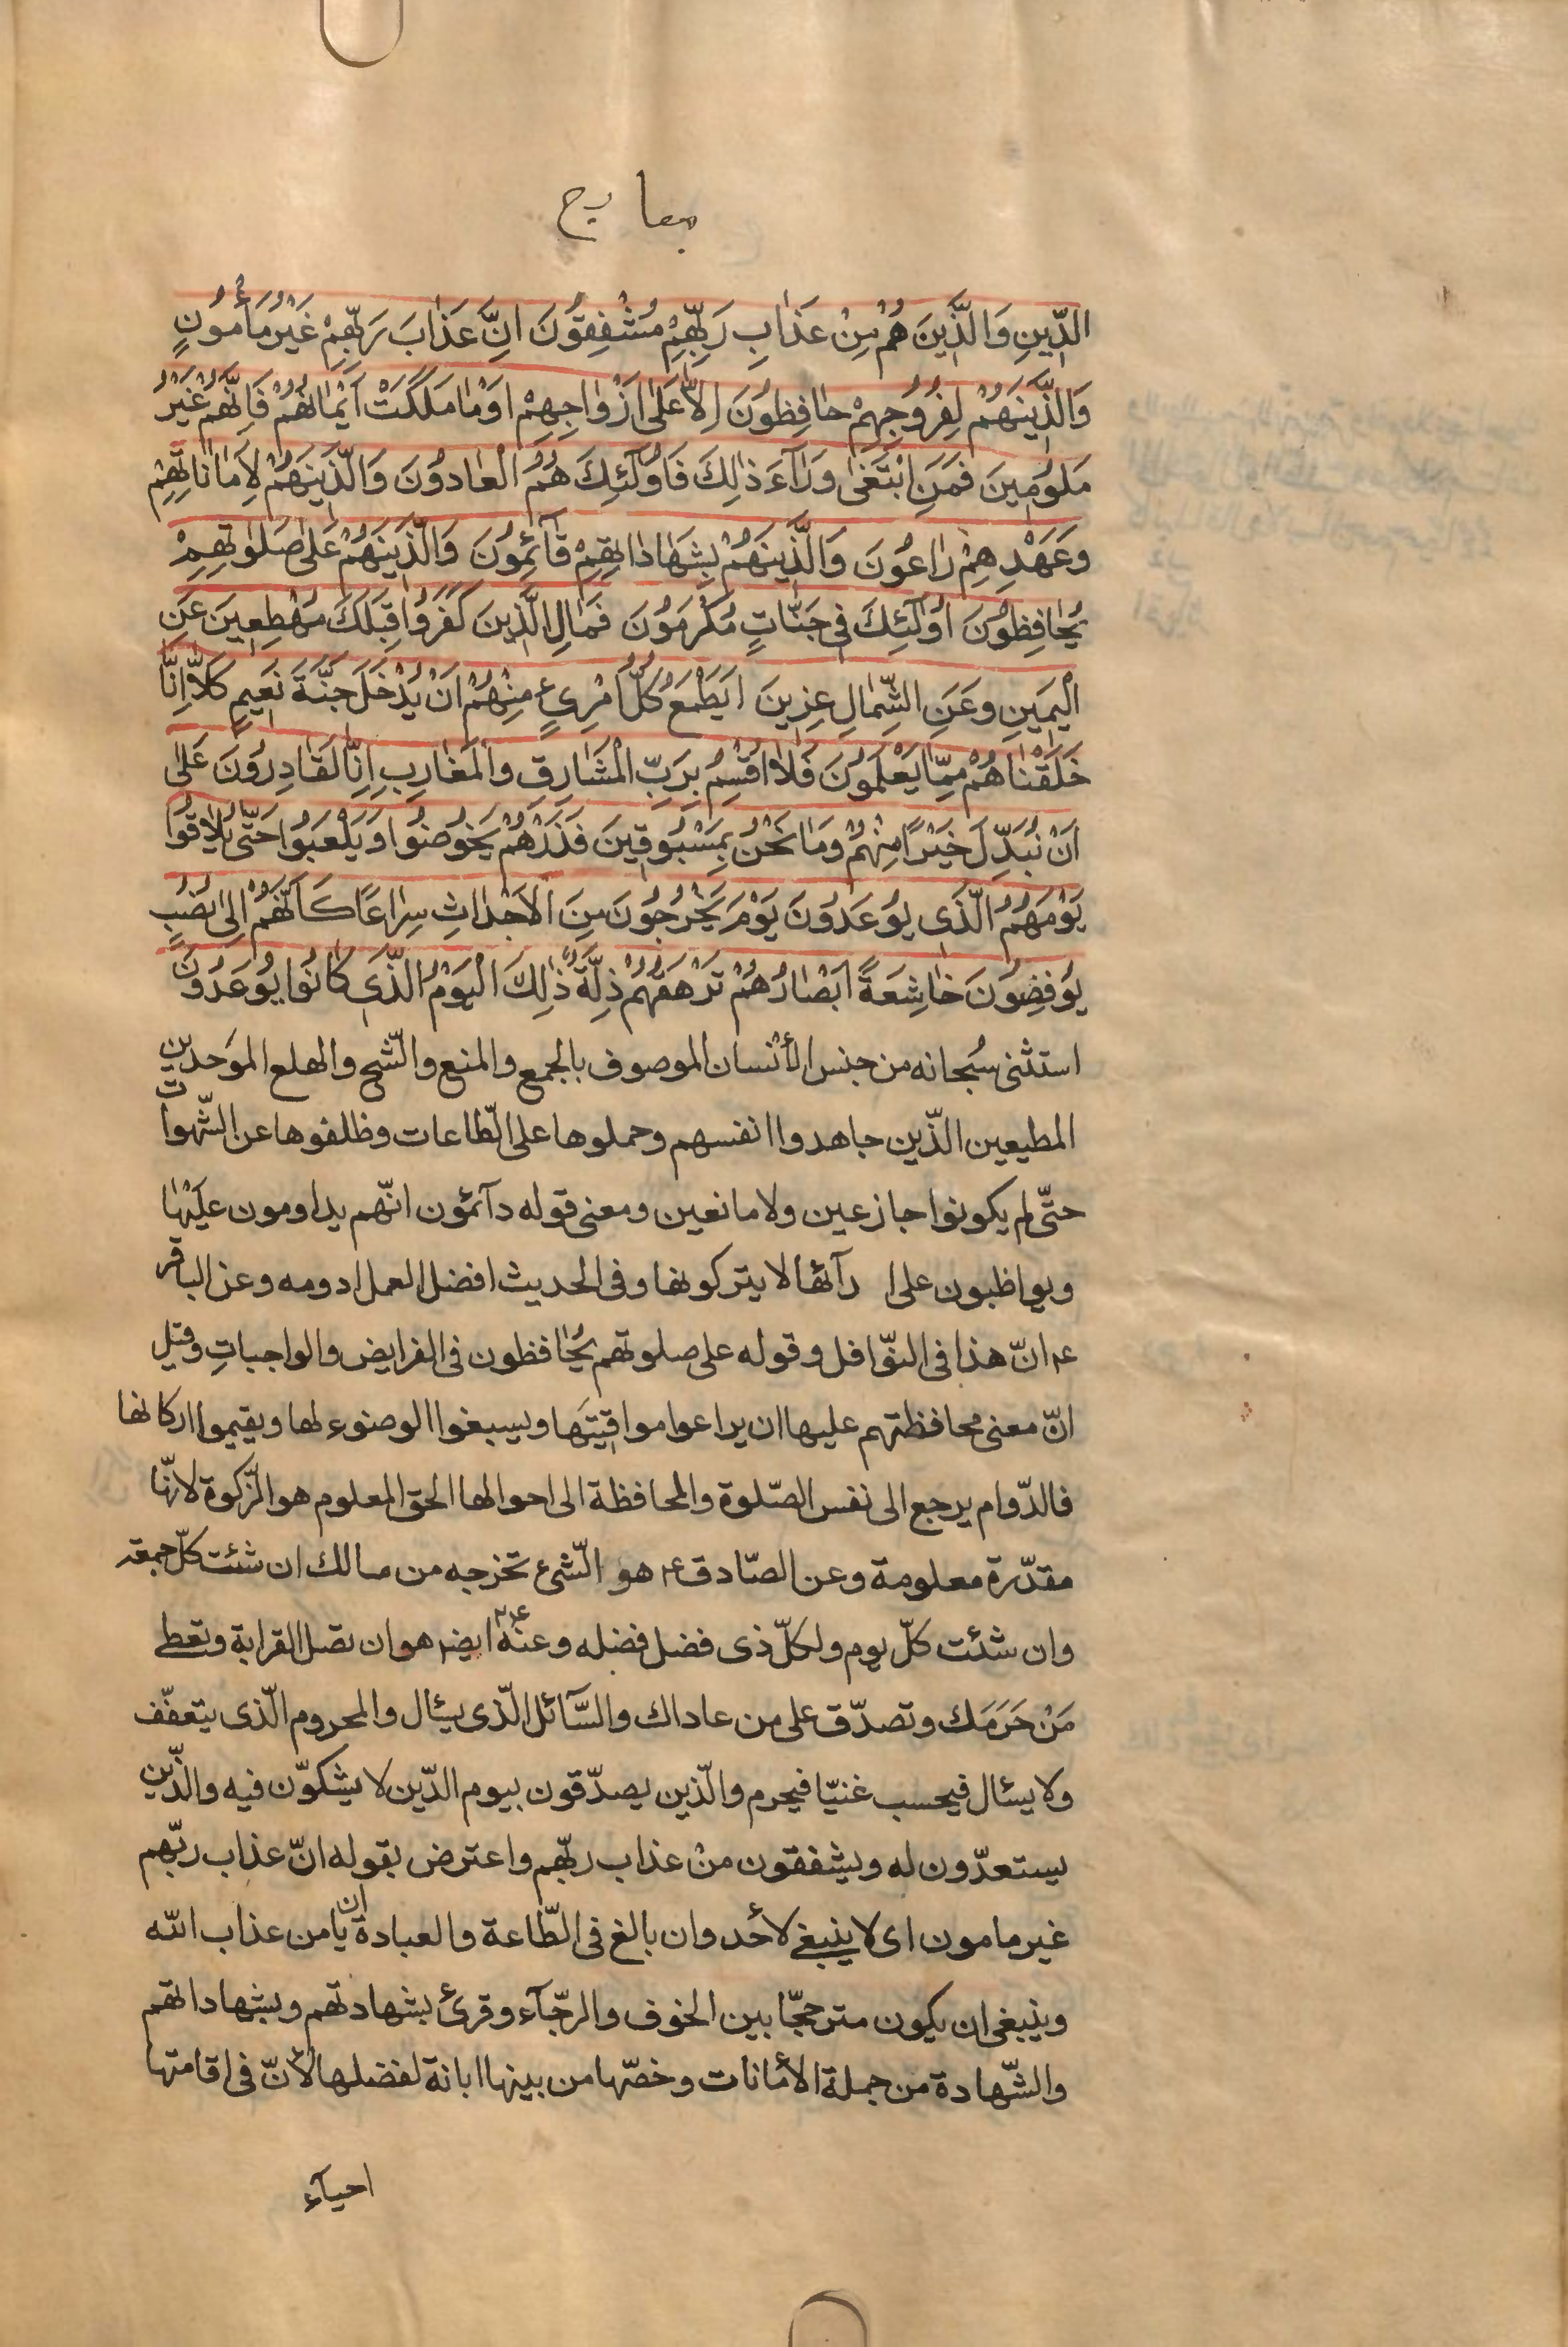 معارج
الدِّينِ وَالَّذَينَ هُمْ مِنْ عَذٰابِ رَبِّهِمْ مُشْفِقُونَ اِنَّ عَذٰابَ رَبِّهِمْ غَيْرُ مَأْمُونٍ
وَالَّذَينَهُمْ لِفُرُوُجِهِمْ حٰافِظوُنَ اِلاّٰ عَلىٰ اَزْوٰاجِهِمْ اَوْ مٰا مَلَكَتْ اَيْمٰانُهُمْ فَاِنَّهُمْ غَيْرُ
مَلوُمَينَ فَمَنِ ابْتَغىٰ وَرٰآءَ ذٰلِكَ فَاُولٰٓئِكَ هُمُ الْعٰادوُنَ وَالَّذَينَهُمْ لِاَمٰانٰاتِهِمْ
وَعَهْدِهِمْ رٰاعُونَ وَالَّذَينَهُمْ بِشَهٰادٰاتِهِمْ قٰآئِموُنَ وَالَّذَينَهُمْ عَلىٰ صَلوٰتِهِمْ
يُحٰافِظوُنَ اُولٰٓئِكَ فى جَنّٰاتٍ مُكْرَموُنَ فَمٰالِ الَّذينَ كَفَروُا قِبَلَكَ مُهْطِعينَ عَنِ
الْيَمينِ وَعَنِ الشِّمٰالِ عِزينَ اَيَطْمَعُ كُلُّ امْرِئٍ مِنْهُمْ اَنْ يُدْخَلَ جَنَّةَ نَعيمٍ كَلاّٰ اِنّٰا
خَلَقْنٰاهُمْ مِمّٰا يَعْلَموُنَ فَلاٰ اُقْسِمُ بِرَبِّ الْمَشٰارِقِ وَالْمَغٰارِبِ اِنّٰا لَقٰادِروُنَ عَلىٰ
اَنْ نُبَدِّلَ خَيْرًا مِنْهُمْ وَمٰا نَحْنُ بِمَسْبوُقينَ فَذَرْهُمْ يَخوُضوُا وَيَلْعَبوُا حَتّىٰ يُلاٰقوُا
يَوْمَهُمُ الَّذى يوُعَدوُنَ يَوْمَ يَخْرُجوُنَ مِنَ الْاَجْدٰاثِ سِرٰاعًا كَاَنَّهُمْ اِلىٰ نُصُبٍ
يوُفِضوُنَ خٰاشِعَةً اَبْصٰارُهُمْ تَرْهَقُهُمْ ذِلَّةٌ ذٰلِكَ الْيَوْمُ الَّذى كٰانوُا يوُعَدوُنَ
استثنى سُبحانه من جنس الأنسان الموصوف بالجمع والمنع والشّح والهلع الموَحدين
المطيعين الّذين جاهدوا انفسهم وحملوها على الطّاعات وظلفوها عن الشّهوات
حتّى لم يكونوا جازعين ولا مانعين ومعنى قوله دآئمون انّهم يداومون عليْهٰا
ويواظبون على ا دآئها لا يتركونها وفى الحديث افضل العمل ادومه وعن الباقر
ع انّ هذا فى النوّافل وقوله على صلوتهم يُحٰافظون فى الفرايض والواجباتِ وقيل
انّ معنى محافظتهم عليها ان يراعوا مواقيتَها ويسبغوا الوضوء لها ويقيموا اركانها
فالدّوام يرجع الى نفس الصّلوة والمحافظة الى احوالها الحق المعلوم هو الزّكوة لانّها
مقدّرة معلومة وعن الصّادق ع هو الشّىء تخرجه من مالك ان شئت كلّ جمعة
وان شئت كلّ يوم ولكلّ ذى فضل فضله وعنه ع ايضا هو ان تصل القرابة وتعطى
مَنْ حَرَمَك وتصدّق على من عاداك والسّآئل الّذى يسئال والمحروم الّذى يتعفّف
ولا يسئال فيحسب غنيّا فيحرم والّذين يصدّقون بيوم الدّين لا يشكوّن فيه والّذين
يستعدّون له ويشفقون منْ عذاب ربّهم واعترض بقوله انّ عذاب ربّهم
غير مامون اى لا ينبغى لأحد وان بالغ فى الطّاعة والعبادة ان يامن عذاب الله
وينبغى ان يكون مترجحّا بين الخوف والرجّآء وقرئ بشهادتهم وبشهاداتهم
والشّهادة من جملة الأمانات وخصّها من بينها ابانة لفضلها لأنّ فى اقامتها
احيآء